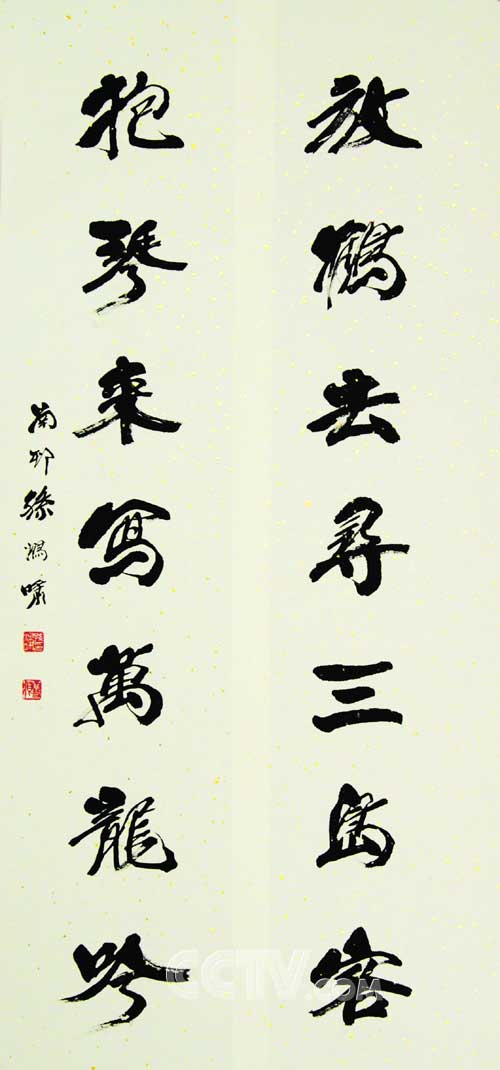 放鶴去尋三島客
抱琴來寫萬龍吟
CCTV.COM